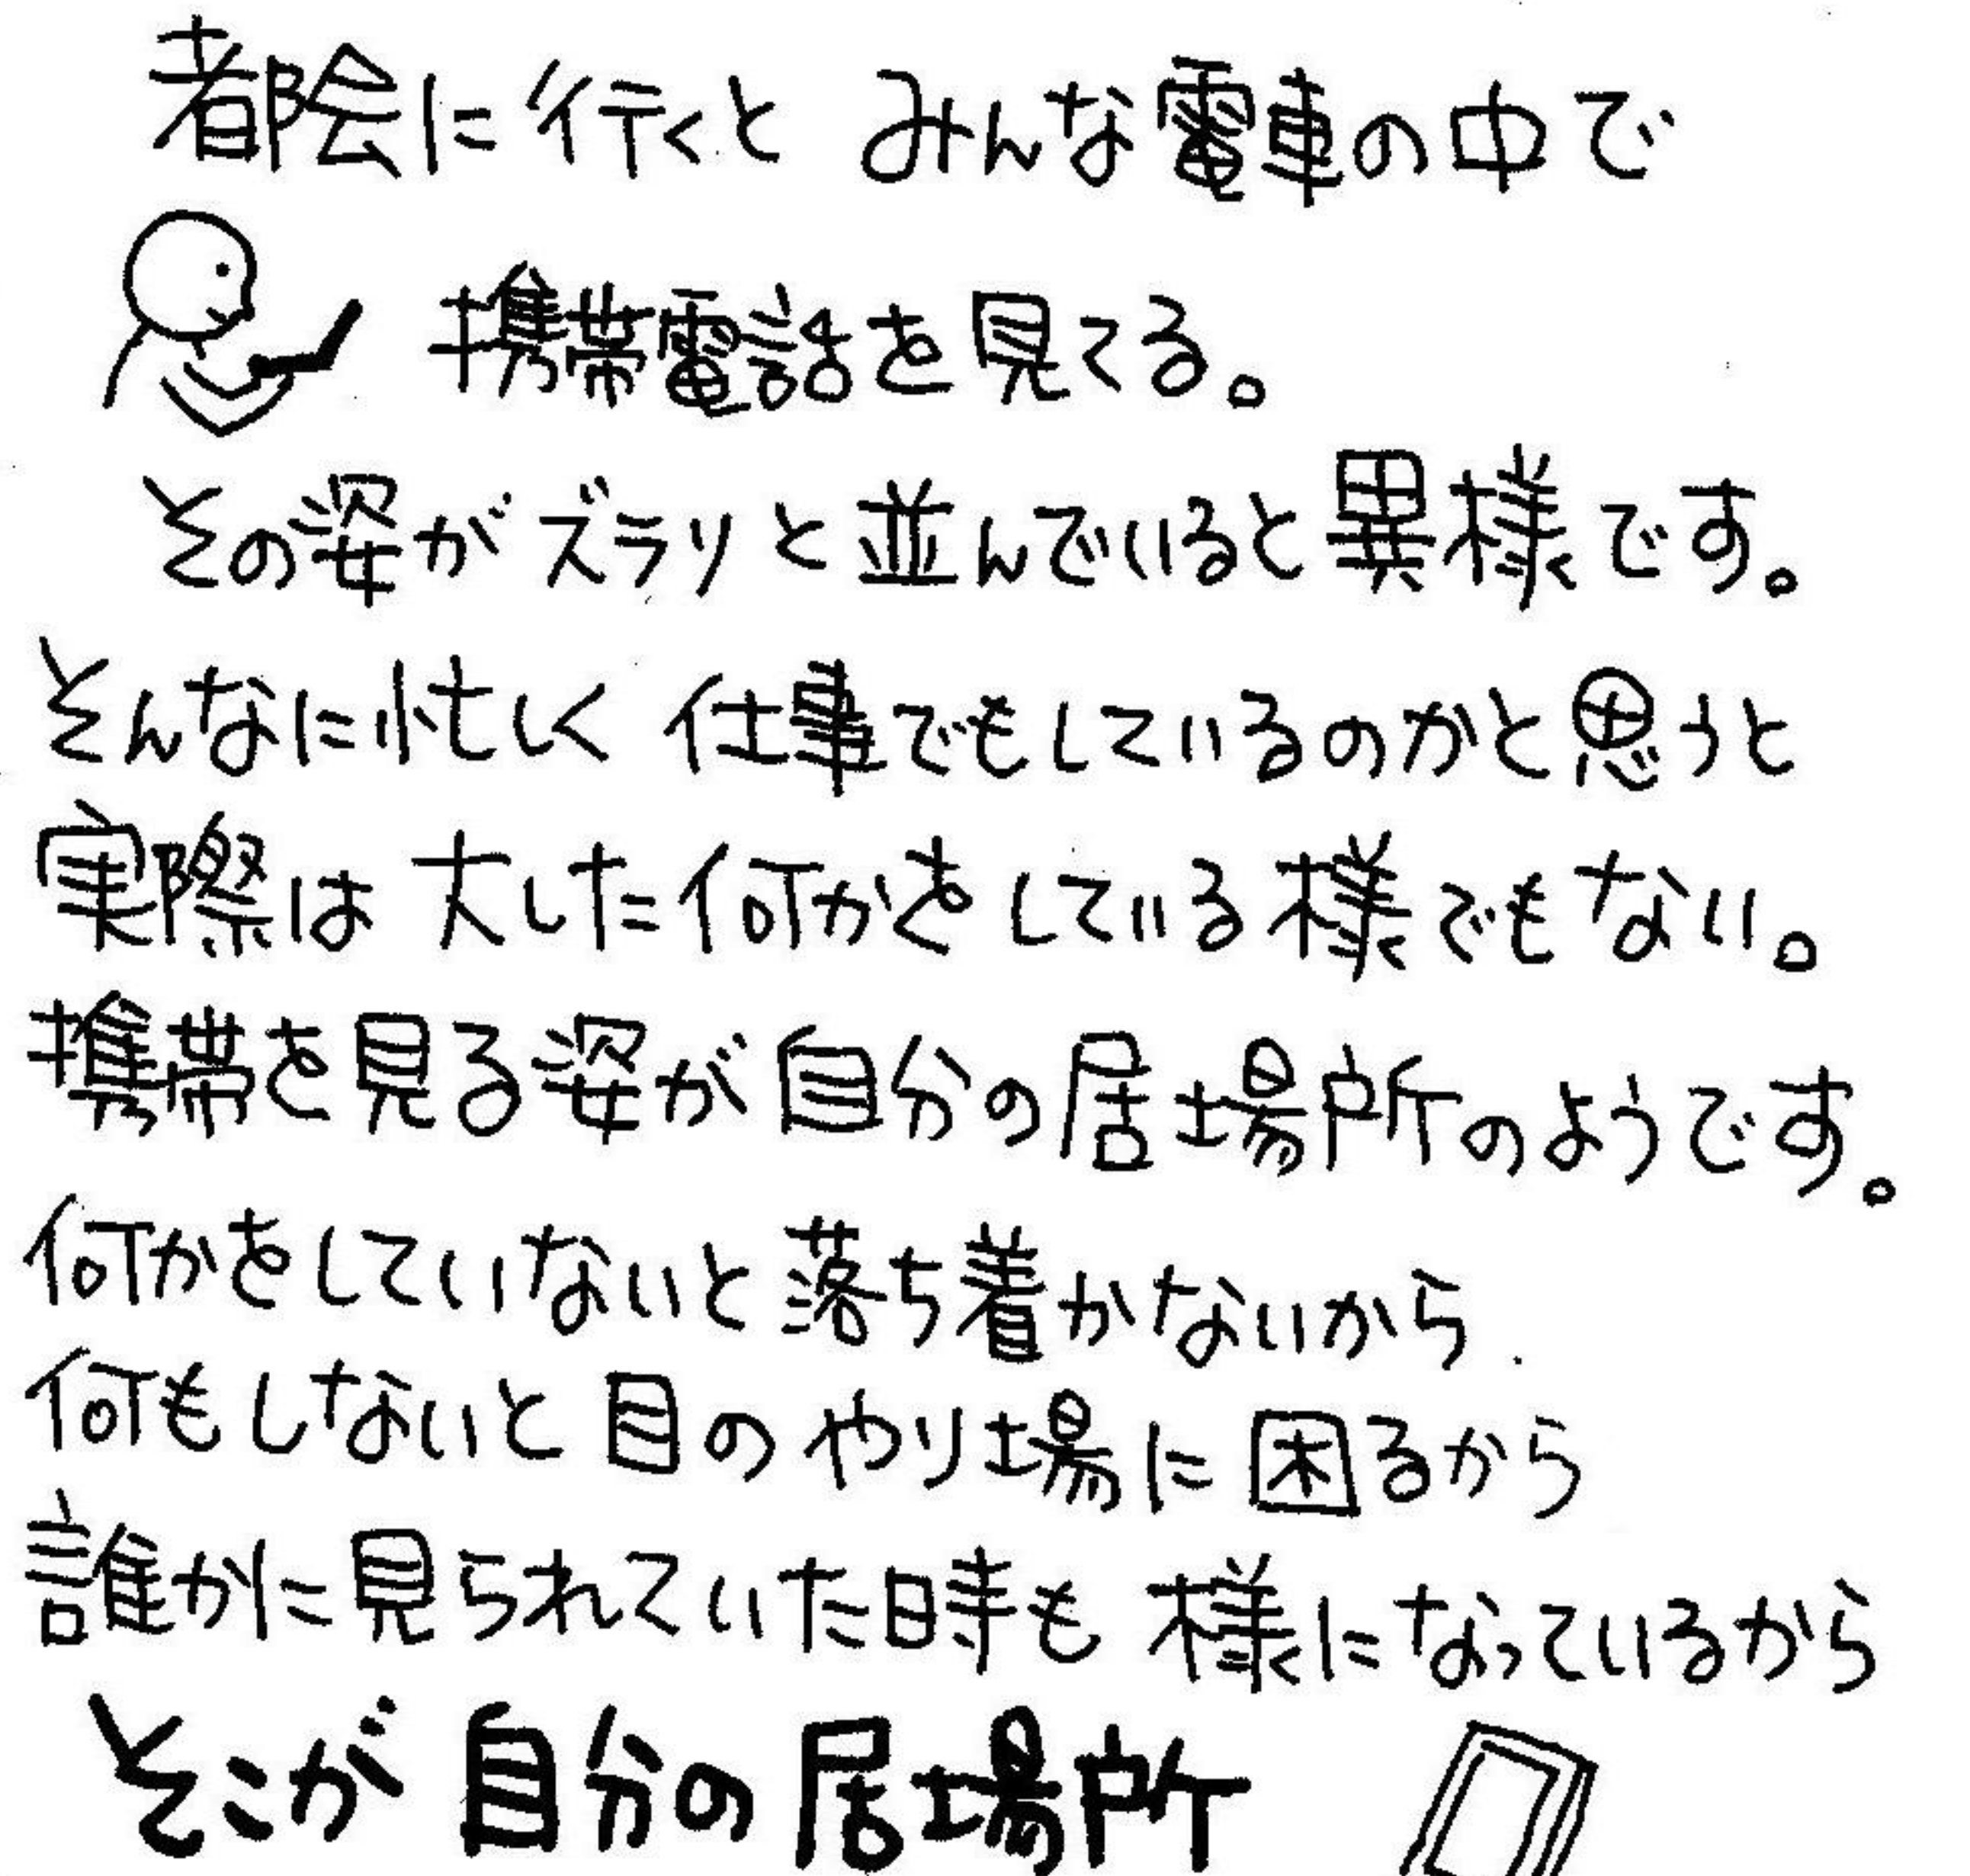 都会に行くと みんな電車の中で
携帯電話を見てる。
その姿がズラリと並んでいると異様です。
そんなに忙しく 仕事でもしているのかと思うと
実際は 大した何かをしている様でもない。
携帯を見る姿が自分の居場所のようです。
何かをしていないと落ち着かないから
何もしないと目のやり場に困るから
誰かに見られていた時も 様になっているから
そこが自分の居場所